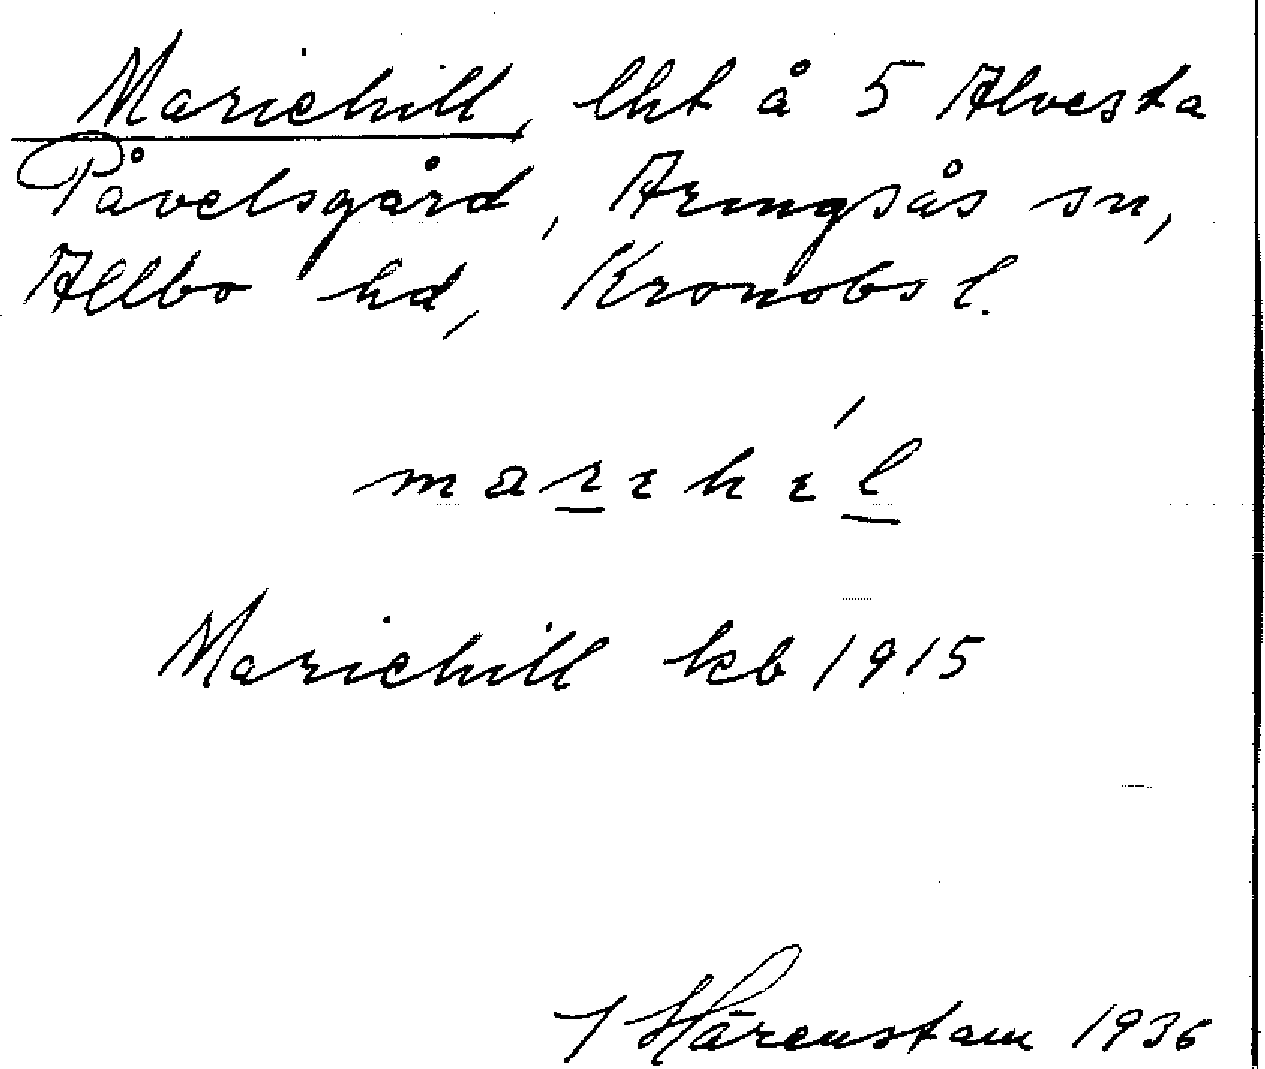 Mariehill, lht å 5 Alvesta
Påvelsgård, Aringsås sn,
Allbo hd, Kronobs l.
marɩhɩ́l
Mariehill kb 1915
J Härenstam 1936